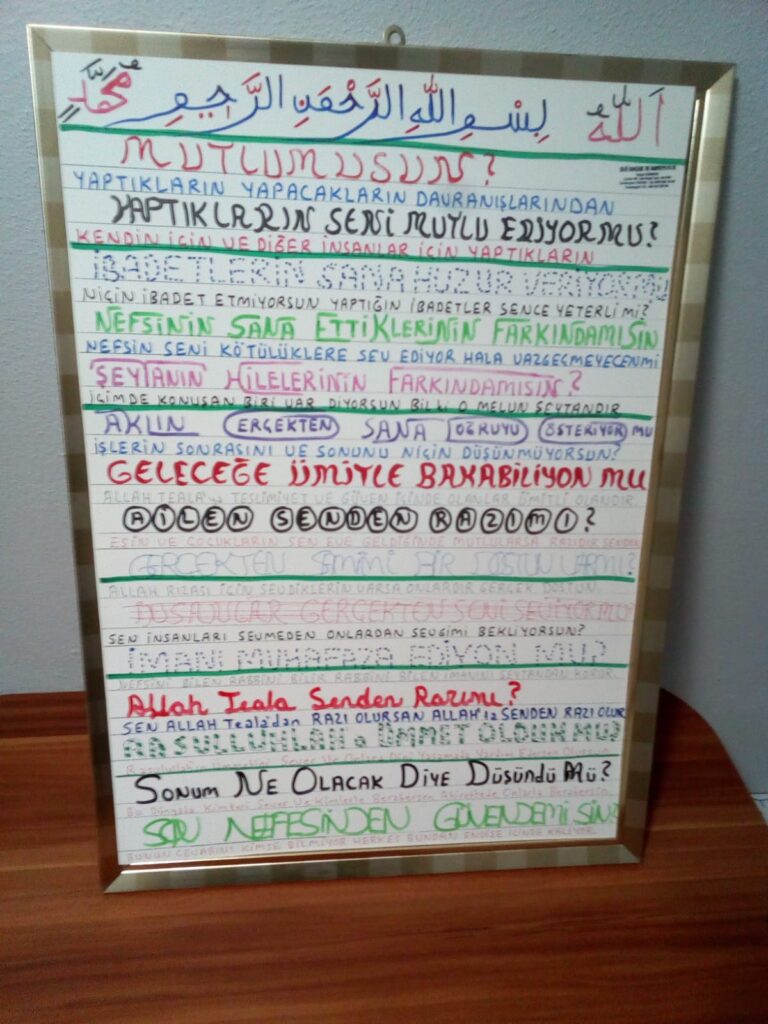 الله بِسْمِ اللهِ الرَّحْمَنِ الرَّحِيمِ مُحَمَّد
MUTLUMUSUN?
YAPTIKLARIN YAPACAKLARIN DAVRANIŞLARINDAN
YAPTIKLARIN SENİ MUTLU EDİYOR MU?
KENDİN İÇİN VE DİĞER İNSANLAR İÇİN YAPTIKLARIN
İBADETLERİN SANA HUZUR VERİYORMU
NİÇİN İBADET ETMİYORSUN YAPTIĞIN İBADETLER SENCE YETERLİ Mİ?
NEFSİNİN SANA ETTİKLERİNİN FARKINDAMISIN
NEFSİN SENİ KÖTÜLÜKLERE SEV EDİYOR HALA VAZGEÇMEYECENMİ
ŞEYTANIN HİLELERİNİN FARKINDAMISIN?
İÇİMDE KONUŞAN BİRİ VAR DİYORSUN BİLKİ O MELUN ŞEYTANDIR
AKLIN GERÇEKTEN SANA DOĞRUYU GÖSTERİYOR MU
İŞLERİN SONRASINI VE SONUNU NİÇİN DÜŞÜNMÜYORSUN?
GELECEĞE ÜMİTLE BAKABİLİYON MU
ALLAH TEALA'ya TESLİMİYET VE GÜVEN İÇİNDE OLANLAR ÜMİTLİ OLANDIR.
AİLEN SENDEN RAZIMI?
EŞİN VE ÇOCUKLARIN SEN EVE GELDİĞİNDE MUTLULARSA RAZIDIR SENDEN
GERÇEKTEN SAMİMİ BİR DOSTUN VARMI?
ALLAH RIZASI İÇİN SEVDİKLERİN VARSA ONLARDIR GERÇEK DOSTUN.
GERÇEKTEN SENİ SEVİYORMU?
SEN İNSANLARI SEVMEDEN ONLARDAN SEVGİMİ BEKLİYORSUN?
İMANI MUHAFAZA EDİYON MU?
NEFSİNİ BİLEN RABBİNİ BİLİR RABBİNİ BİLEN İMANINI ŞEYTANDAN KORUR.
Allah Teala Senden Razımı?
SEN ALLAH Teala'dan RAZI OLURSAN ALLAH'ta SENDEN RAZI OLUR
RASULULLAHLAH'a ÜMMET OLDUN MU?
SONUM NE OLACAK DİYE DÜŞÜNDÜ MÜ?
Bu Dünyada Kimleri Sever Ve Kimlerle Berabersen Ahirettede Onlarla Berabersin.
SON NEFESİNDEN GÜVENDEMİSİN?
BUNUN CEVABINI KİMSE BİLMİYOR HERKES BUNDAN ENDİŞE İÇİNDE KALIYOR.